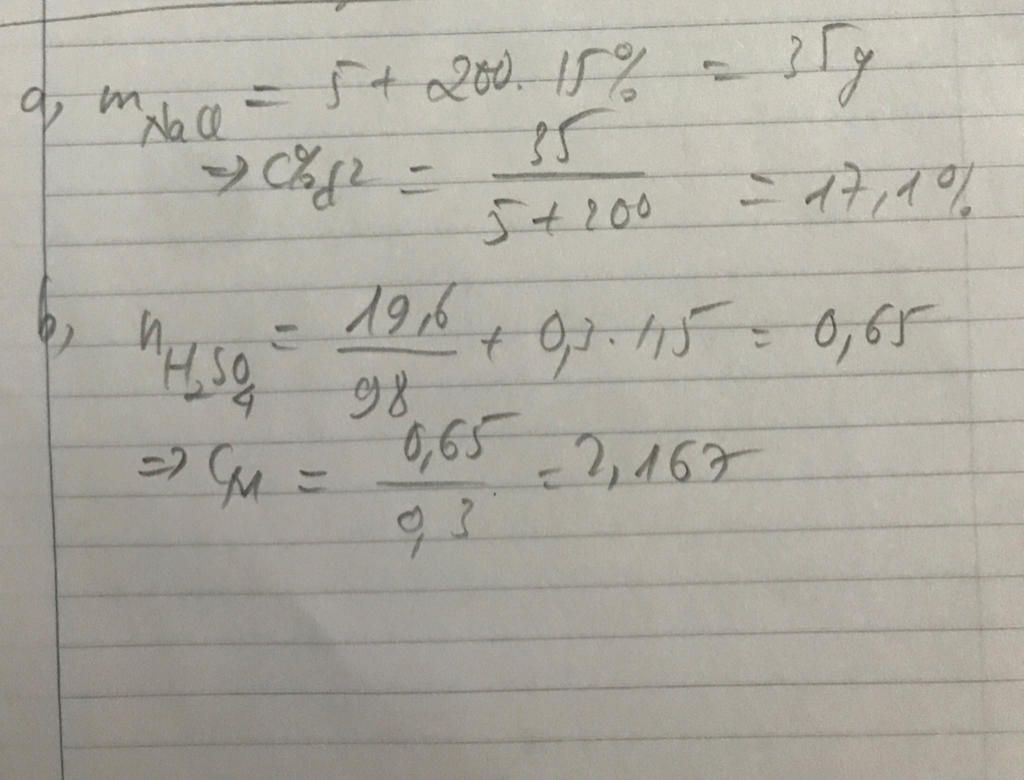 a, m NaCl = 5 + 200. 15% = 35g
=> C%d2 = 35 / 5 + 200 = 17,1%
b, n H2SO4 = 19,6 / 98 + 0,3. 1,5 = 0,65
=> CM = 0,65 / 0,3 = 2,167